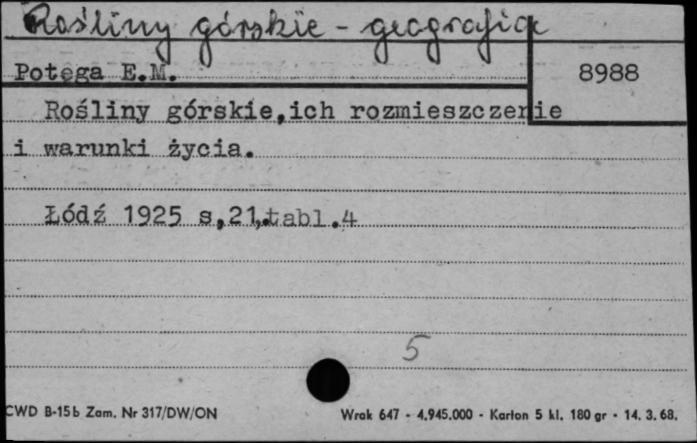 Rośliny górskie - geografia
Potęga E.M.
8988
Rośliny górskie,ich rozmieszczenie
i warunki życia.
Łódź 1925 s,21,tabl.4
5
CWD B-15b Zam. Nr 317/DW/ON
Wrak 647 - 4.945.000 - Karton 5 kl. 180 gr - 14. 3. 68.